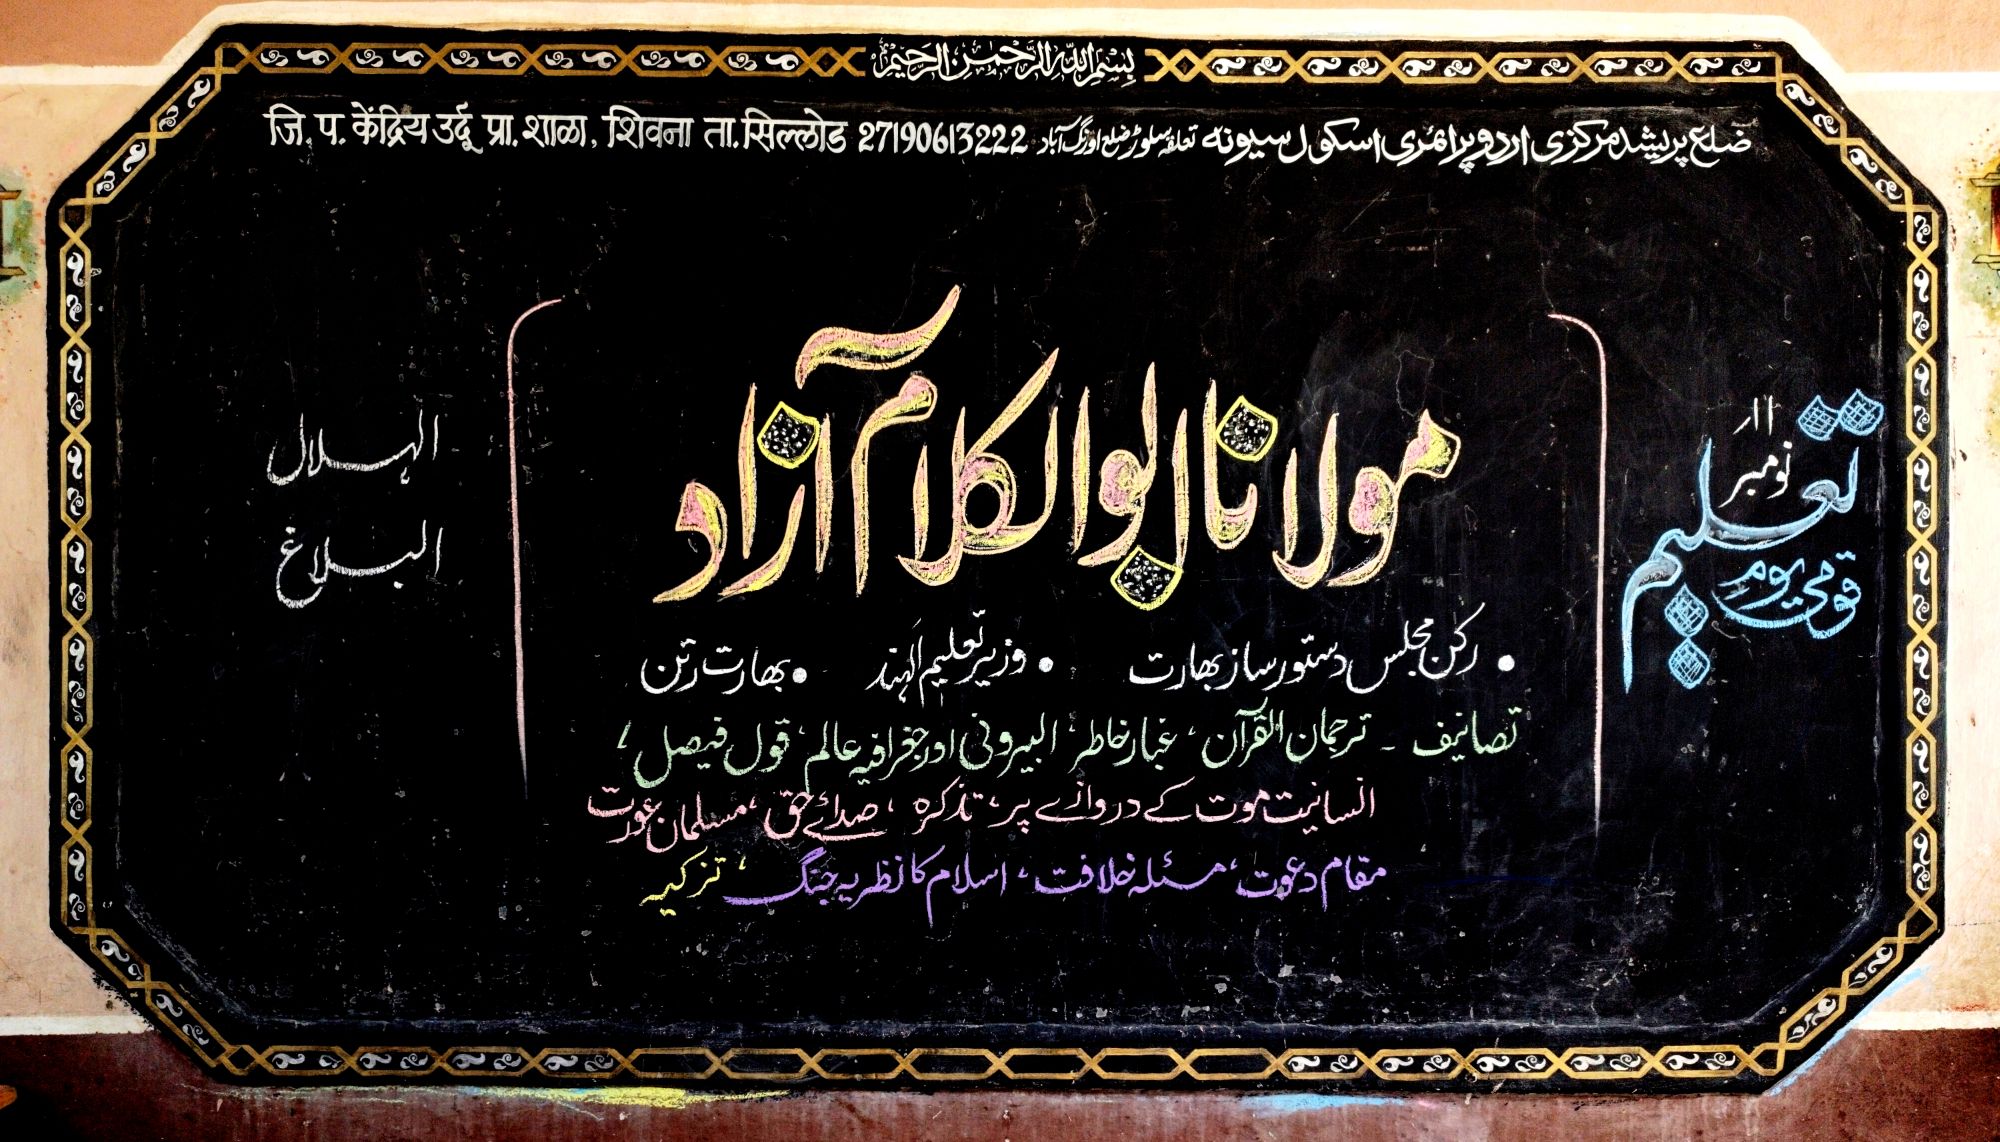 بسم اللہ الرحمٰن الرحیم
जि. प. केंद्रिय उर्दू प्रा. शाळा, शिवना ता. सिल्लोड 27190613222 ضلع پریشد مرکزی اردو پرائمری اسکول سیونہ تعلقہ سلوڑ ضلع اورنگ آباد
۱۱ر نومبر
قومی یومِ تعلیم
مولانا ابوالکلام آزاد
• رکن مجلس دستور ساز بھارت • وزیر تعلیم الہند • بھارت رتن
تصانیف - ترجمان القرآن، غبار خاطر، البیرونی اور جغرافیہ عالم، قول فیصل،
انسانیت موت کے دروازے پر، تذکرہ، صدائے حق، مسلمان عورت
مقام دعوت، مسئلہ خلافت، اسلام کا نظریہ جنگ، تزکیہ
الہلال
البلاغ